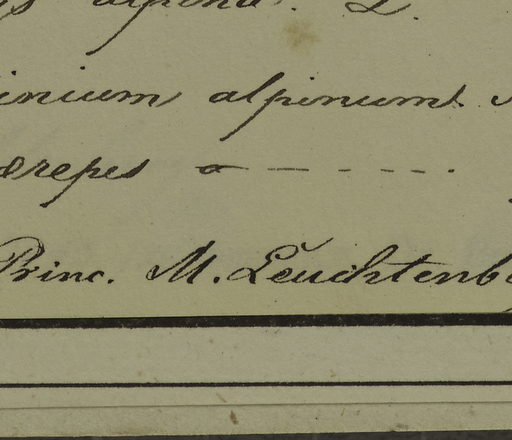 alpina. L.
inium alpinum.
erepes
Princ. M. Leuchtenb